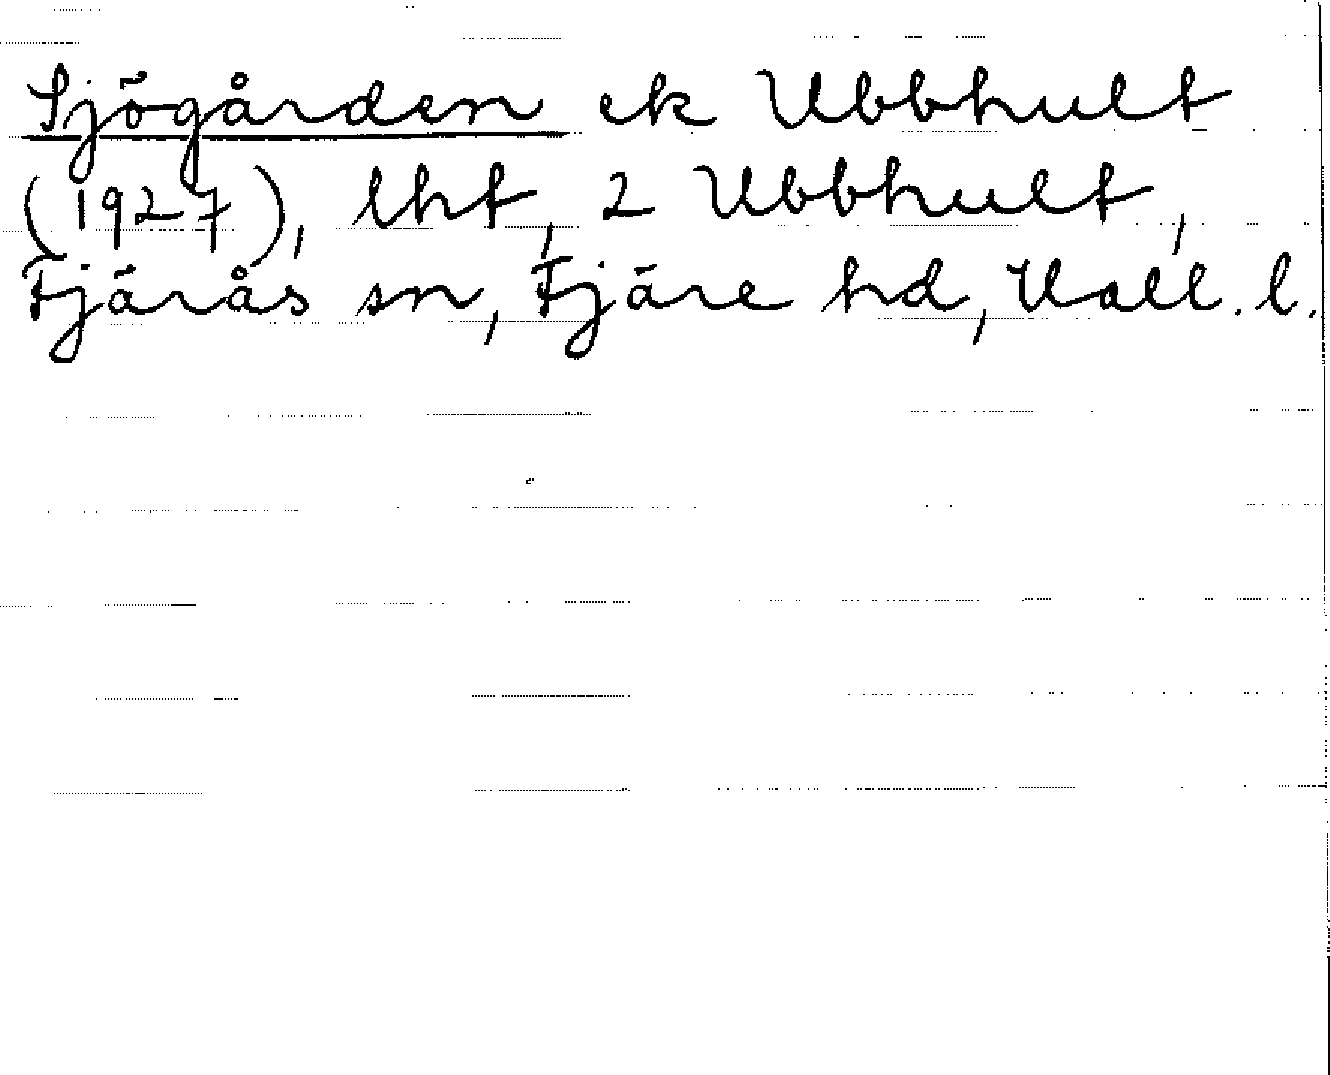 Sjögården ek Ubbhult
(1927), lht, 2 Ubbhult,
Fjärås sn, Fjäre hd, Hall. l.